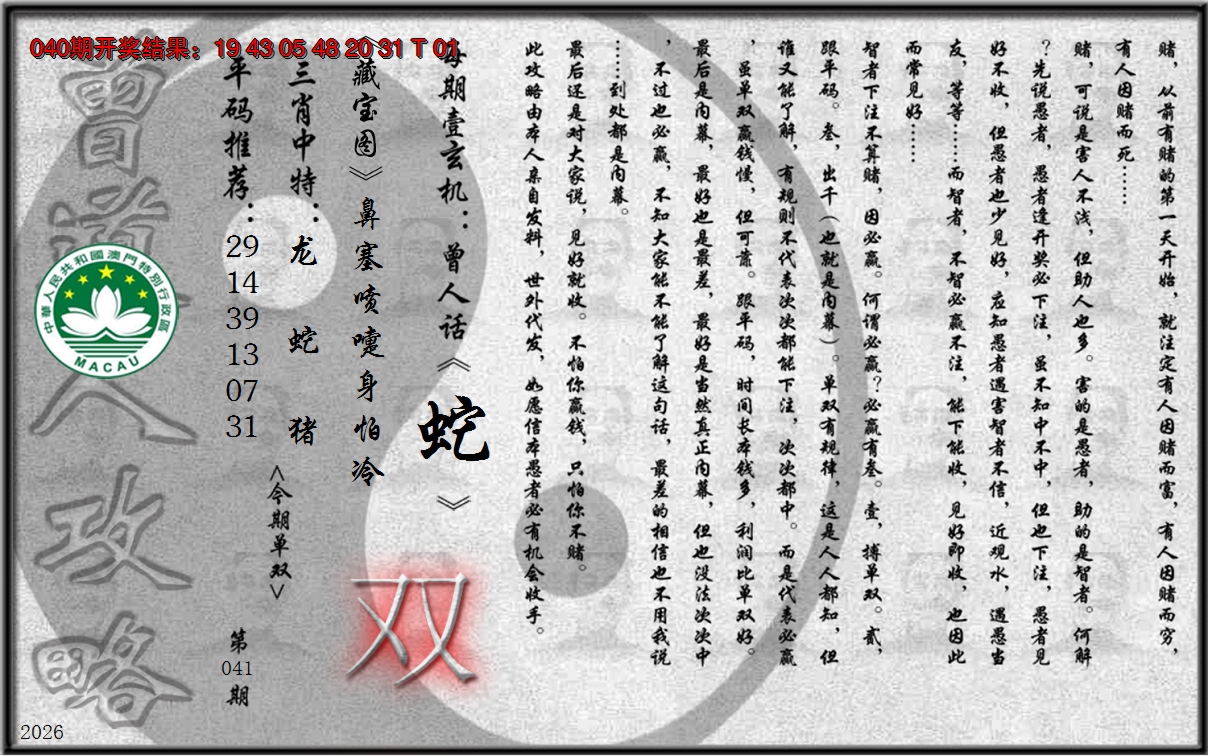 040期开奖结果：19 43 05 48 20 31 T 01
赌，从前有赌的第一天开始，就注定有人因赌而富，有人因赌而穷，
有人因赌而死……
赌，可说是害人不浅，但助人也多。害的是愚者，助的是智者。何解
？先说愚者，愚者逢开奖必下注，虽不知中不中，但也下注，愚者见
好不收，但愚者也少见好，应知愚者遇害智者不信，近观水，遇愚当
友，等等……而智者，不智必赢不注，能下能收，见好即收，也因此
而常见好……
智者下注不算赌，因必赢。何谓必赢？必赢有叁。壹，搏单双。贰，
跟平码。叁，出千（也就是内幕）。单双有规律，这是人人都知，但
谁又能了解，有规则不代表次次都能下注，次次都中。而是代表必赢
，虽单双赢钱慢，但可靠。跟平码，时间长本钱多，利润比单双好。
最后是内幕，最好也是最差，最好是当然真正内幕，但也没法次次中
，不过也必赢，不知大家能不能了解这句话，最差的相信也不用我说
……到处都是内幕。
最后还是对大家说，见好就收。不怕你赢钱，只怕你不赌。
此攻略由本人亲自发料，世外代发，如愿信本愚者必有机会收手。
每期壹玄机：曾人话《蛇》
《藏宝图》鼻塞喷嚏身怕冷
双
三肖中特：龙 蛇 猪
<今期单双>
平码推荐：
29
14
39
13
07
31
第
041
期
曾道人攻略
中華人民共和國澳門特別行政區
MACAU
2026